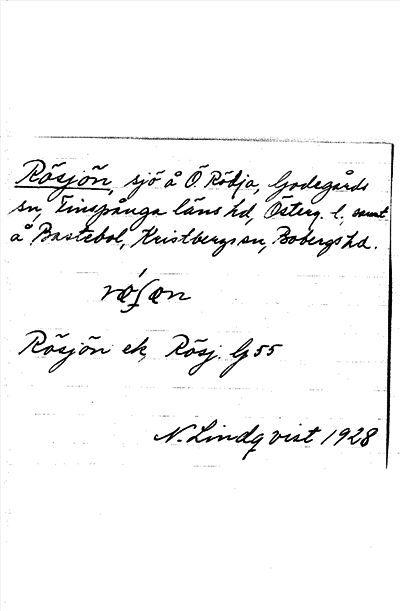 Rösjön, sjö å Ö. Rödja, Godegårds
sn, Finspånga läns hd, Österg. l., samt
å Bastebol, Kristbergs sn, Bobergs hd.
Rösjön ek, Rösj. G 55
N. Lindqvist 1928